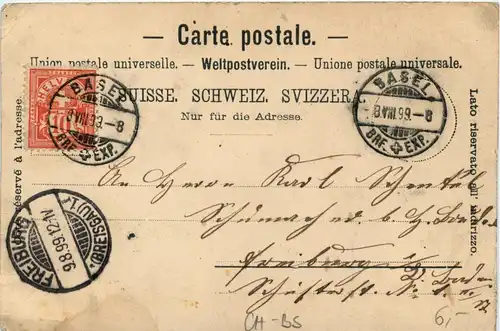 Carte postale.
Union postale universelle. — Weltpostverein. — Unione postale universale.
SUISSE. SCHWEIZ. SVIZZERA.
Nur für die Adresse.
réservé à l'adresse.
Lato riservato all'indirizzo.
HELVETIA
10
BASEL
VIII.99.–8
BRF. EXP.
BASEL
8.VIII.99.–8
BRF. EXP.
FREIBURG
9.8.99.12-1N
(BREISGAU) 1.
An Herrn Karl
Schuhmacher b. H.
Freiburg i. Baden
CH-BS
6,-